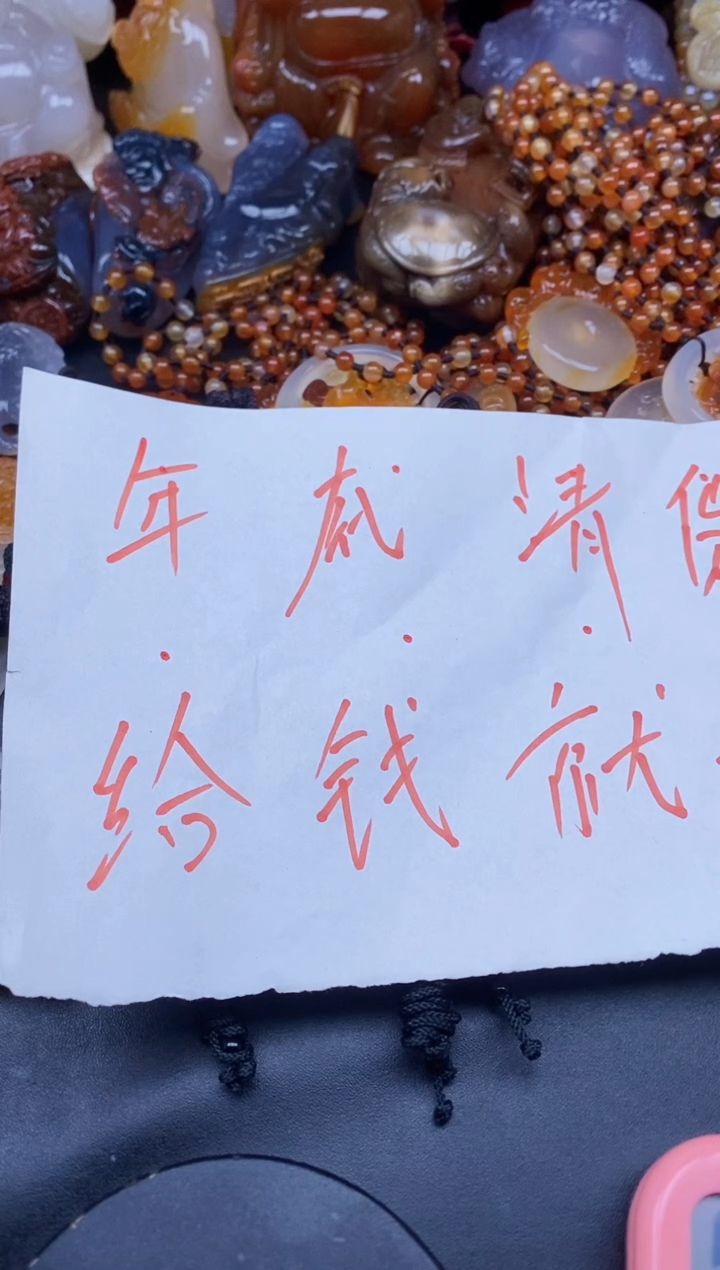 年底清
给钱就